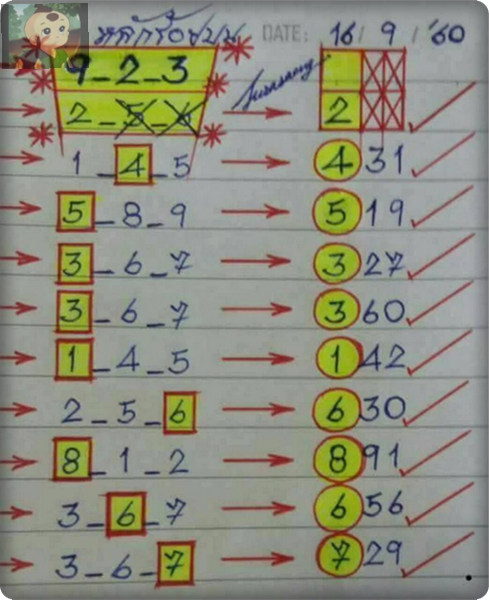 หลักร้อยบน DATE: 16 / 9 / '60
9-2-3
2-5-6 → 2
1-4-5 → 431
5-8-9 → 519
3-6-7 → 327
3-6-7 → 360
1-4-5 → 142
2-5-6 → 630
8-1-2 → 891
3-6-7 → 656
3-6-7 → 729